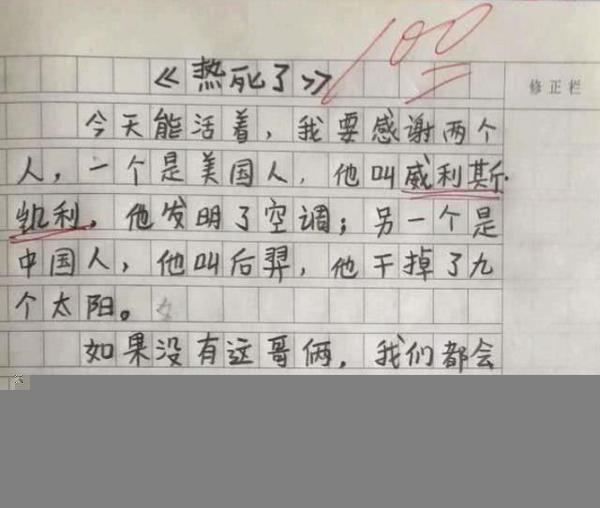 100
《热死了》
修正栏
今天能活着，我要感谢两个
人，一个是美国人，他叫威利斯·
凯利，他发明了空调；另一个是
中国人，他叫后羿，他干掉了九
个太阳。
如果没有这哥俩，我们都会